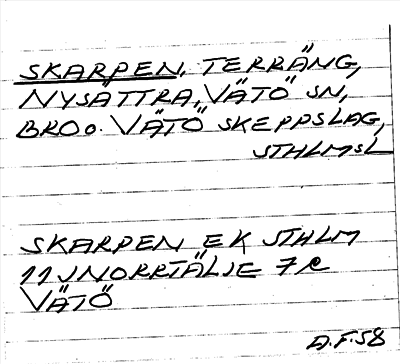 SKARPEN, TERRÄNG,
NYSÄTTRA, VÄTÖ SN,
BRO o. VÄTÖ SKEPPSLAG,
STHLMSL
SKARPEN EK STHLM
11 J NORRTÄLJE 7 R
VÄTÖ
A.F.58